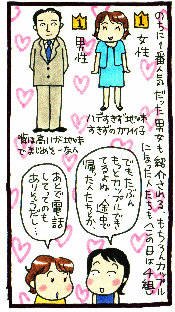 のちに1番人気だった男女も紹介される。もちろんカップル
になった人たちも(この日は4組)
1
女性
1
男性
ハデすぎず地味
すぎずのカワイイ子
でまじめそーな人
でもたぶん
もっとカップルでき
てるよね。途中で
消えた人たちとか。
あとで電話
してってのも
ありそうだし…